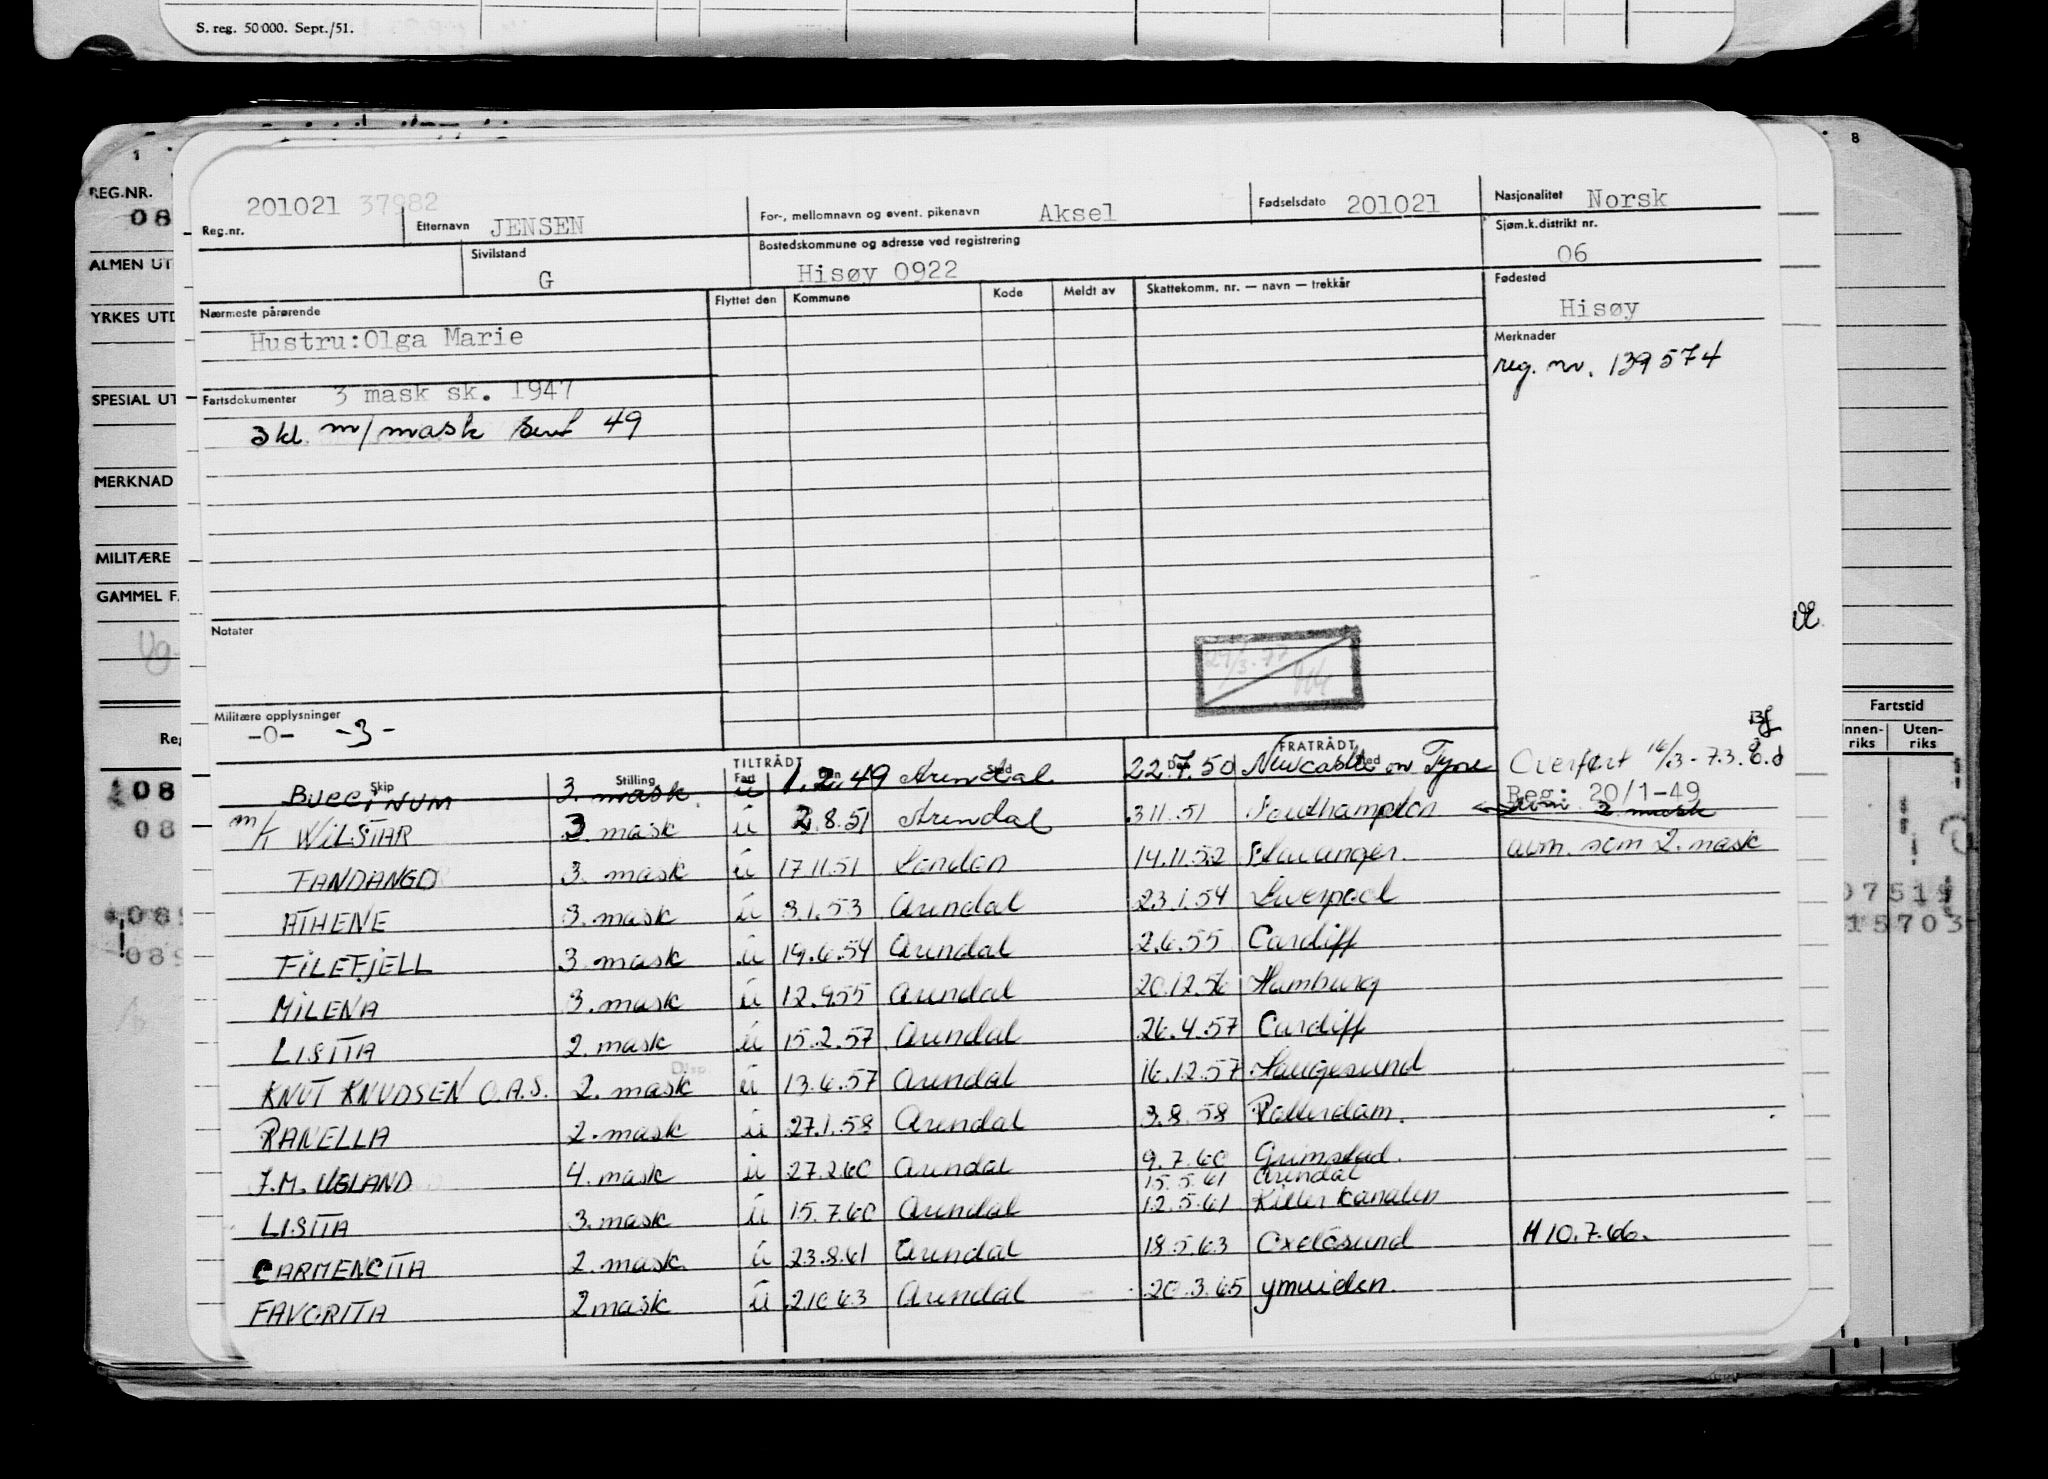 S. reg. 50 000. Sept./51.
1 8
REG.NR.
08
ALMEN UT
YRKES UTD
SPECIAL UT
MERKNAD
MILITÆRE
GAMMEL F
Reg.nr. 201021 37982 Etternavn JENSEN For-, mellomnavn og event. pikenavn Aksel Fødselsdato 201021 Nasjonalitet Norsk
Sivilstand G Bostedskommune og adresse ved registrering Hisøy 0922 Sjøm.k.distrikt nr. 06
Nærmeste pårørende Flyttet den Kommune Kode Meldt av Skattekomm. nr. — navn — trekkår Fødested Hisøy
Hustru:Olga Marie
Merknader
reg. nr. 139574
Fartsdokumenter 3 mask sk. 1947
3 kl. m/mask sert 49
Notater
29/3-77
Militære opplysninger
-0- -3-
Fartstid
Innen-riks Uten-riks
TILTRÅDT FRATRÅDT
Skip Stilling Fart Den Sted Den Sted
Overført 16/3-73.
BUCCINUM 3. mask. u 1.2.49 Arendal 22.7.50 Newcastle on Tyne
Reg: 20/1-49
m/t WILSTAR 3 mask u 2.8.51 Arendal 3.11.51 Southampton
avm. som 2. mask
FANDANGO 3. mask u 17.11.51 London 14.11.52 Stavanger.
ATHENE 3. mask u 3.1.53 Arendal 23.1.54 Liverpool
FILEFJELL 3. mask u 19.6.54 Arendal 2.6.55 Cardiff
MILENA 3. mask u 12.9.55 Arendal 20.12.56 Hamburg
LISITA 2. mask u 15.2.57 Arendal 26.4.57 Cardiff
Disp.
KNUT KNUDSEN O.A.S. 2. mask u 13.6.57 Arendal 16.12.57 Haugesund
RANELLA 2. mask u 27.1.58 Arendal 3.8.58 Rotterdam.
J.M. UGLAND 4. mask u 27.2.60 Arendal 9.7.60 Grimstad.
15.5.61 Arendal
LISITA 3. mask u 15.7.60 Arendal 12.5.61 Kieler kanalen
CARMENCITA 2. mask u 23.8.61 Arendal 18.5.63 Oxelösund H 10.7.66.
FAVORITA 2 mask u 2.10.63 Arendal 20.3.65 ymuiden.